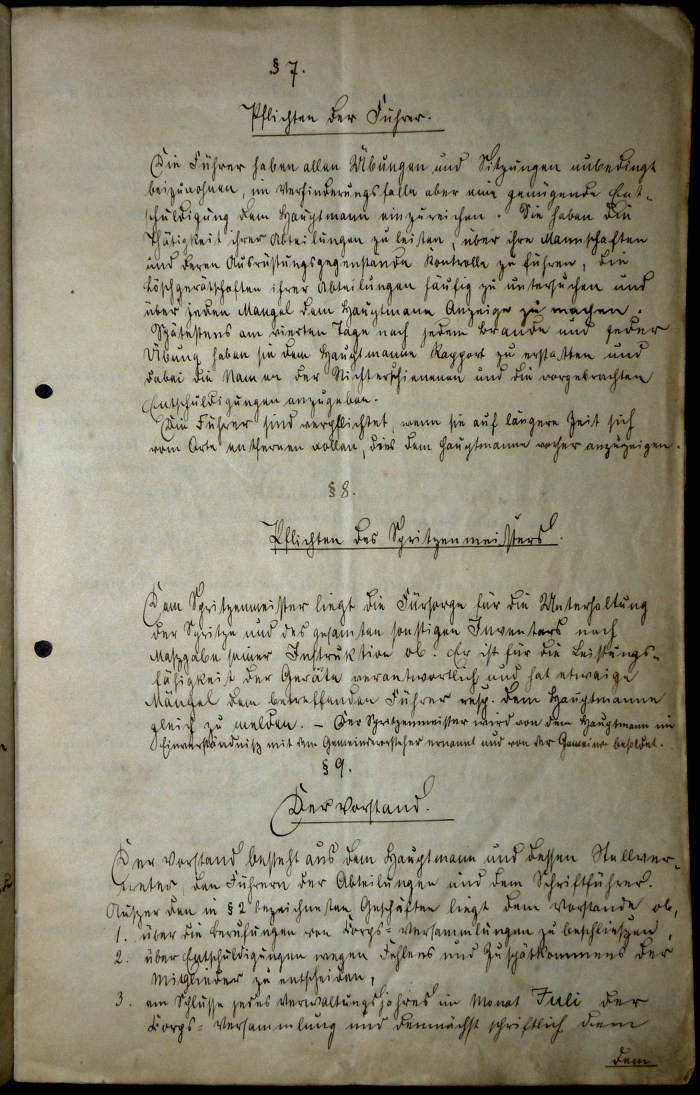 § 7.
Pflichten der Führer.
Die Führer haben allen Übungen und Sitzungen unbedingt
beizuwohnen, im Verhinderungsfalle aber eine genügende Ent-
schuldigung dem Hauptmann einzureichen. Sie haben die
Thätigkeit ihrer Abteilungen zu leiten, über ihre Mannschaften
und deren Ausrüstungsgegenstände Kontrolle zu führen, die
Löschgerätschaften ihrer Abteilungen häufig zu untersuchen und
über jeden Mangel dem Hauptmann Anzeige zu machen.
Spätestens am vierten Tage nach jedem Brande und jeder
Übung haben sie dem Hauptmanne Rapport zu erstatten und
dabei die Namen der Nichterschienenen und die vorgebrachten
Entschuldigungen anzugeben.
Die Führer sind verpflichtet, wenn sie auf längere Zeit sich
vom Orte entfernen wollen, dies dem Hauptmanne vorher anzuzeigen.
§ 8.
Pflichten des Spritzenmeisters.
Dem Spritzenmeister liegt die Fürsorge für die Unterhaltung
der Spritze und des gesamten sonstigen Inventars nach
Maszgabe seiner Instruktion ob. Er ist für die Leistungs-
fähigkeit der Geräte verantwortlich und hat etwaige
Mängel dem betreffenden Führer resp. dem Hauptmanne
gleich zu melden. – Der Spritzenmeister wird von dem Hauptmann im
Einverständnisz mit dem Gemeindevorsteher ernannt und von der Gemeine besoldet.
§ 9.
Der Vorstand.
Der Vorstand besteht aus dem Hauptmann und dessen Stellver-
treter, den Führern der Abteilungen und dem Schriftführer.
Auszer den in § 2 bezeichneten Geschäften liegt dem Vorstande ob,
1. über die Berufungen von Corps-Versammlungen zu beschlieszen,
2. über Entschuldigungen wegen Fehlens und Zuspätkommens der
Mitglieder zu entscheiden,
3. am Schlusse jedes Verwaltungsjahres im Monat Juli der
Corps-Versammlung und demnächst schriftlich dem
dem